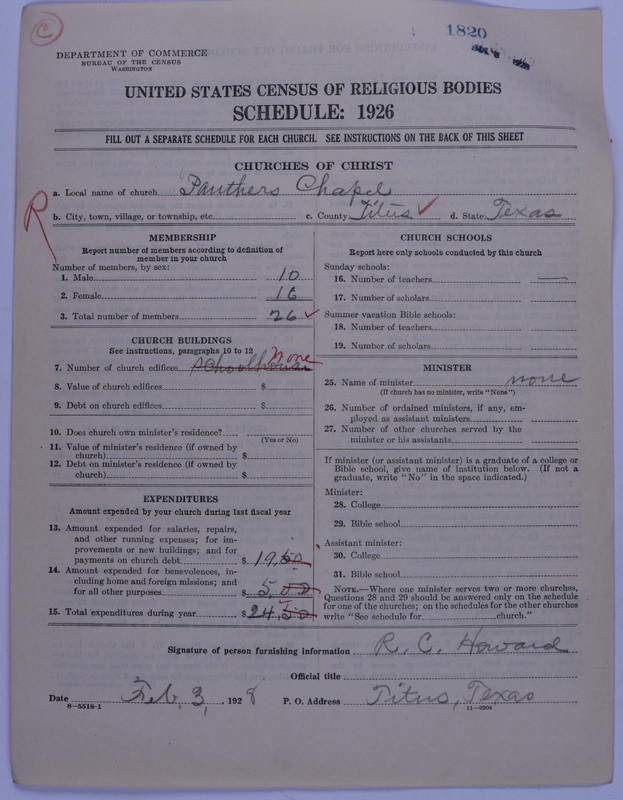 C
1820
DEPARTMENT OF COMMERCE
BUREAU OF THE CENSUS
WASHINGTON
UNITED STATES CENSUS OF RELIGIOUS BODIES
SCHEDULE: 1926
FILL OUT A SEPARATE SCHEDULE FOR EACH CHURCH. SEE INSTRUCTIONS ON THE BACK OF THIS SHEET
CHURCHES OF CHRIST
a. Local name of church Panthers Chapel
R
b. City, town, village, or township, etc. c. County Titus ✓ d. State Texas
MEMBERSHIP
Report number of members according to definition of
member in your church
Number of members, by sex:
1. Male 10
2. Female 16
3. Total number of members 26 ✓
CHURCH BUILDINGS
See instructions, paragraphs 10 to 12
7. Number of church edifices Schoolhouse none
8. Value of church edifices $
9. Debt on church edifices $
10. Does church own minister's residence?
(Yes or No)
11. Value of minister's residence (if owned by
church) $
12. Debt on minister's residence (if owned by
church) $
EXPENDITURES
Amount expended by your church during last fiscal year
13. Amount expended for salaries, repairs,
and other running expenses; for im-
provements or new buildings; and for
payments on church debt $ 19.50
14. Amount expended for benevolences, in-
cluding home and foreign missions; and
for all other purposes $ 5.00
15. Total expenditures during year $ 24.50
CHURCH SCHOOLS
Report here only schools conducted by this church
Sunday schools:
16. Number of teachers
17. Number of scholars
Summer vacation Bible schools:
18. Number of teachers
19. Number of scholars
MINISTER
25. Name of minister none
(If church has no minister, write "None")
26. Number of ordained ministers, if any, em-
ployed as assistant ministers
27. Number of other churches served by the
minister or his assistants
If minister (or assistant minister) is a graduate of a college or
Bible school, give name of institution below. (If not a
graduate, write "No" in the space indicated.)
Minister:
28. College
29. Bible school
Assistant minister:
30. College
31. Bible school
NOTE.—Where one minister serves two or more churches,
Questions 28 and 29 should be answered only on the schedule
for one of the churches; on the schedules for the other churches
write "See schedule for church."
Signature of person furnishing information R. C. Howard
Official title
Date Feb, 3, 1928 P. O. Address Titus, Texas
8-5518-1 11-9204